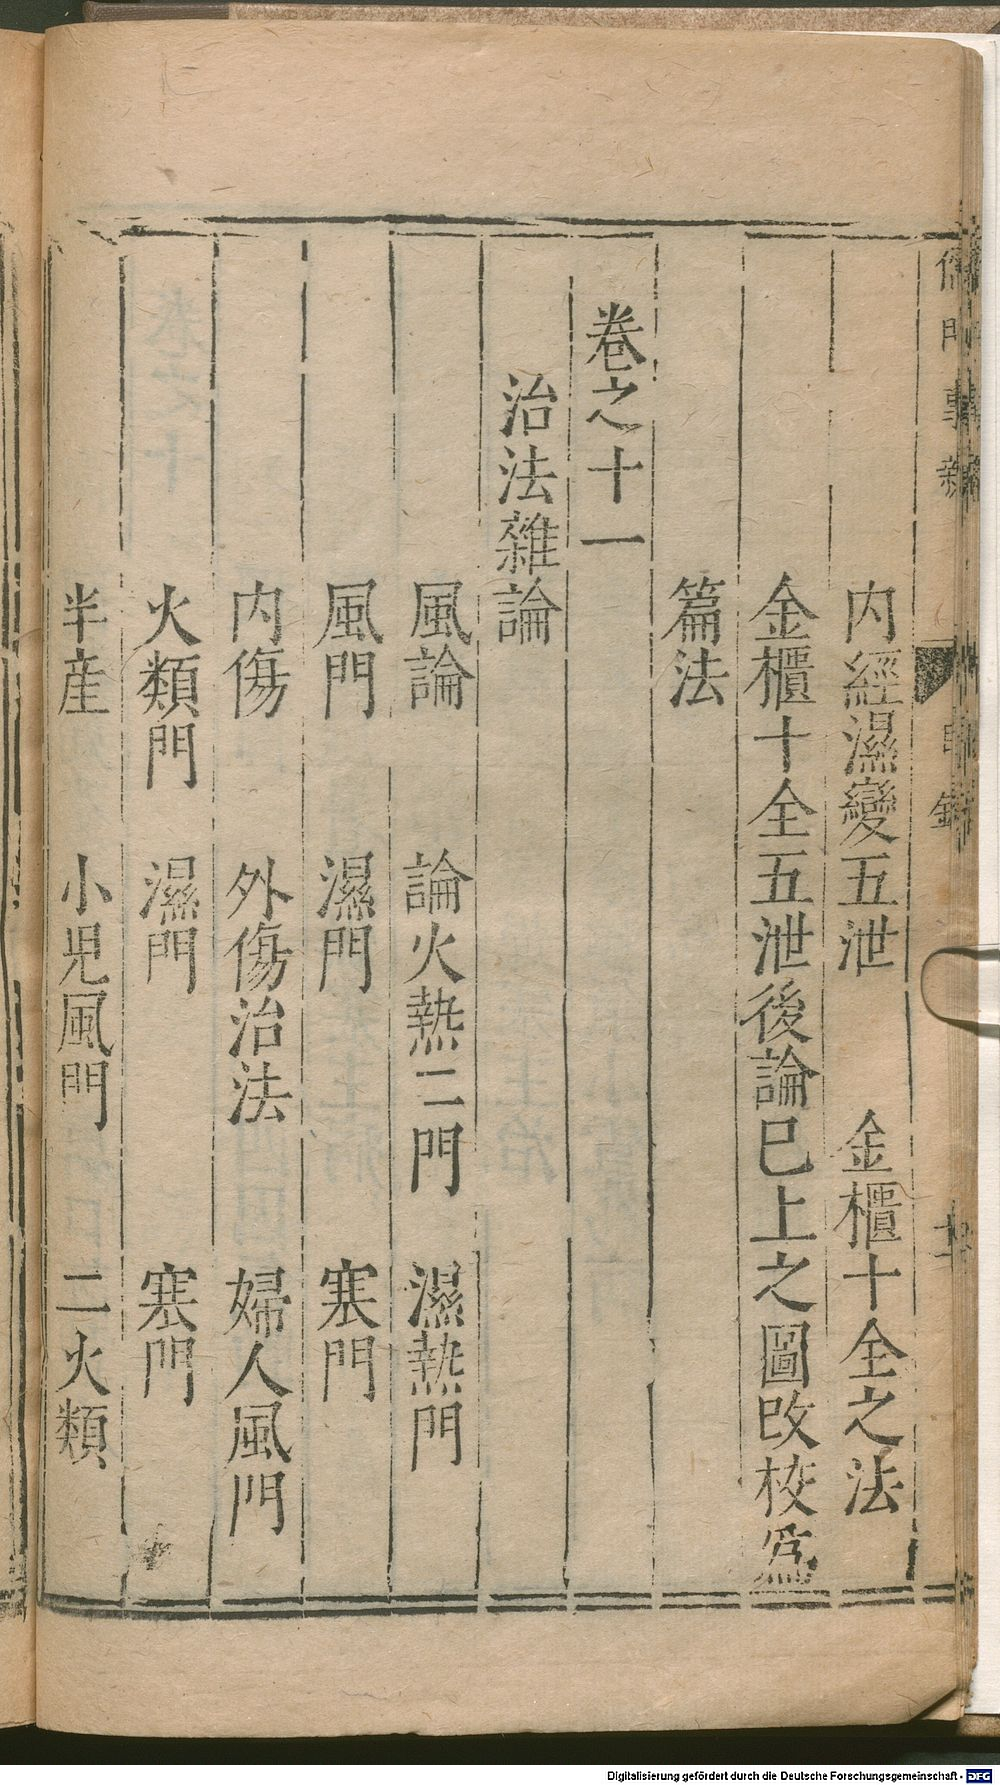 内經濕變五泄　金櫃十全之法
金櫃十全五泄後論巳上之圖改校爲
篇法
卷之十一
治法雜論
風論　論火熱二門　濕熱門
風門　濕門　寒門
内傷　外傷治法　婦人風門
火類門　濕門　寒門
半産　小児風門　二火類
Digitalisierung gefördert durch die Deutsche Forschungsgemeinschaft - DFG